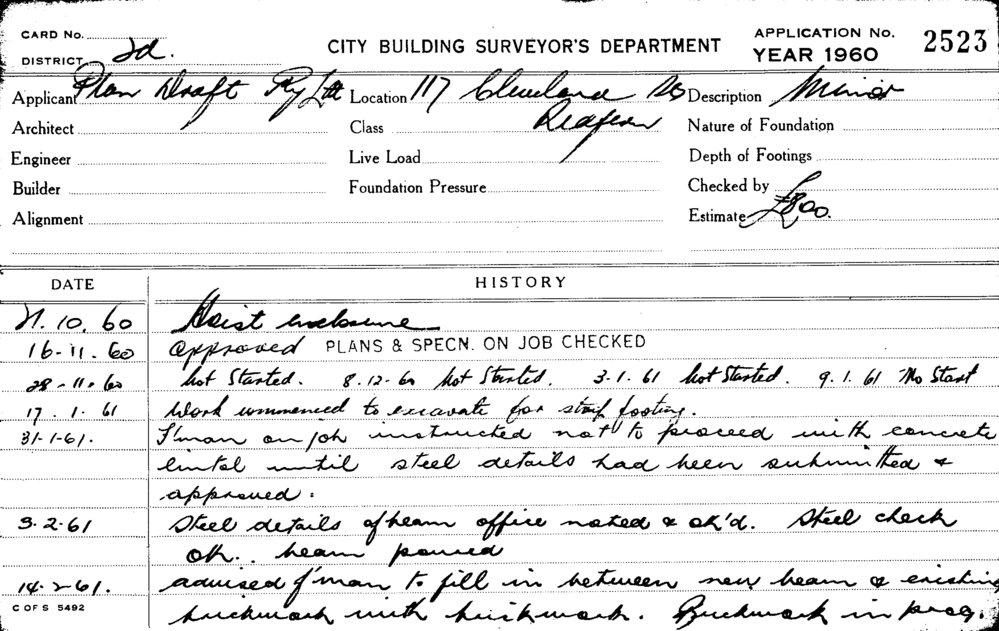 CARD No.
DISTRICT 2d.
CITY BUILDING SURVEYOR'S DEPARTMENT
APPLICATION No. 2523
YEAR 1960
Applicant Plan Draft Pty Ltd Location 117 Cleveland St Description Minor
Architect Class Redfern Nature of Foundation
Engineer Live Load Depth of Footings
Builder Foundation Pressure Checked by
Alignment Estimate £800.
DATE HISTORY
21.10.60 Hoist enclosure
16-11.60 approved PLANS & SPECN. ON JOB CHECKED
28-11-60 Not Started. 8.12-60 Not Started. 3-1.61 Not Started. 9.1.61 No Start
17.1.61 Work commenced to excavate for strip footing.
31-1-61. F'man on job instructed not to proceed with concrete
lintel until steel details had been submitted &
approved.
3-2-61 Steel details of beam office noted & ok'd. Steel check
OK. beam poured
14-2-61. advised f'man to fill in between new beam & existing
C OF S 5492
brickwork with brickwork. Brickwork in prog.